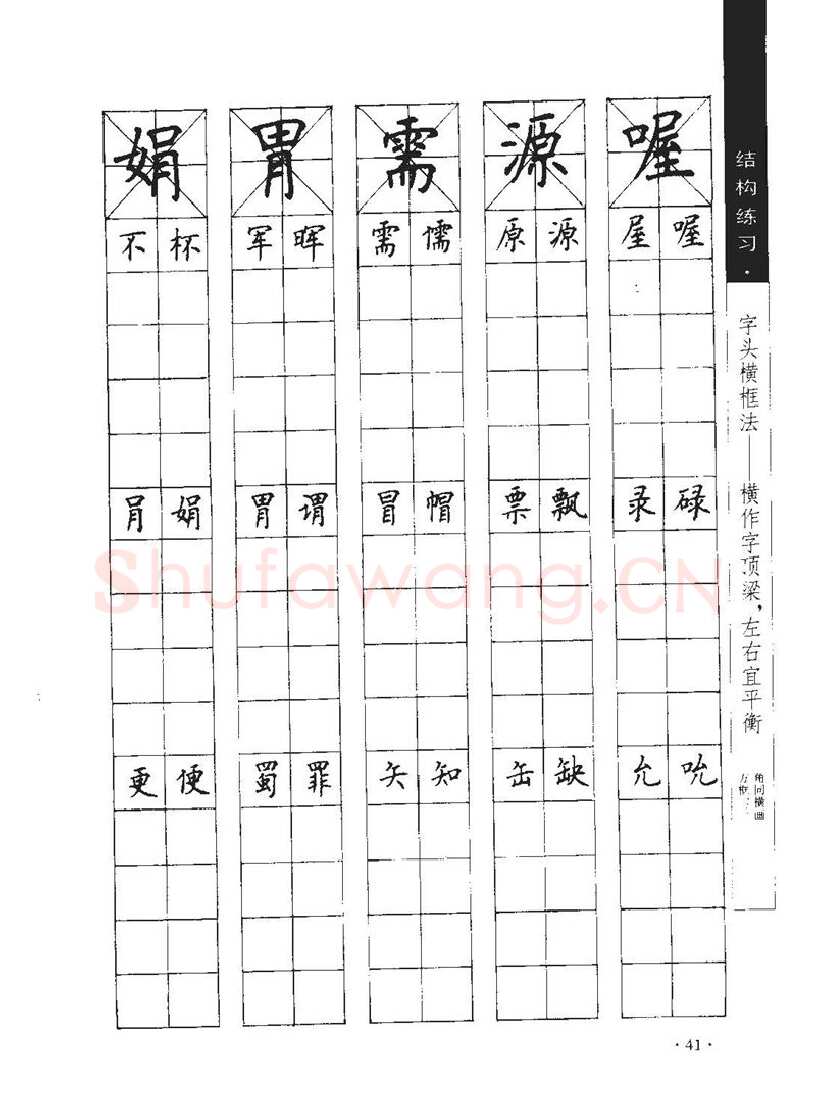 结构练习·
字头横框法——横作字顶梁，左右宜平衡
喔 源 需 胃 娟
屋 喔 原 源 需 懦 军 晖 不 杯
录 碌 票 飘 冒 帽 胃 谓 肙 娟
允 吮 缶 缺 矢 知 蜀 罪 更 便
Shufawang.CN
·41·